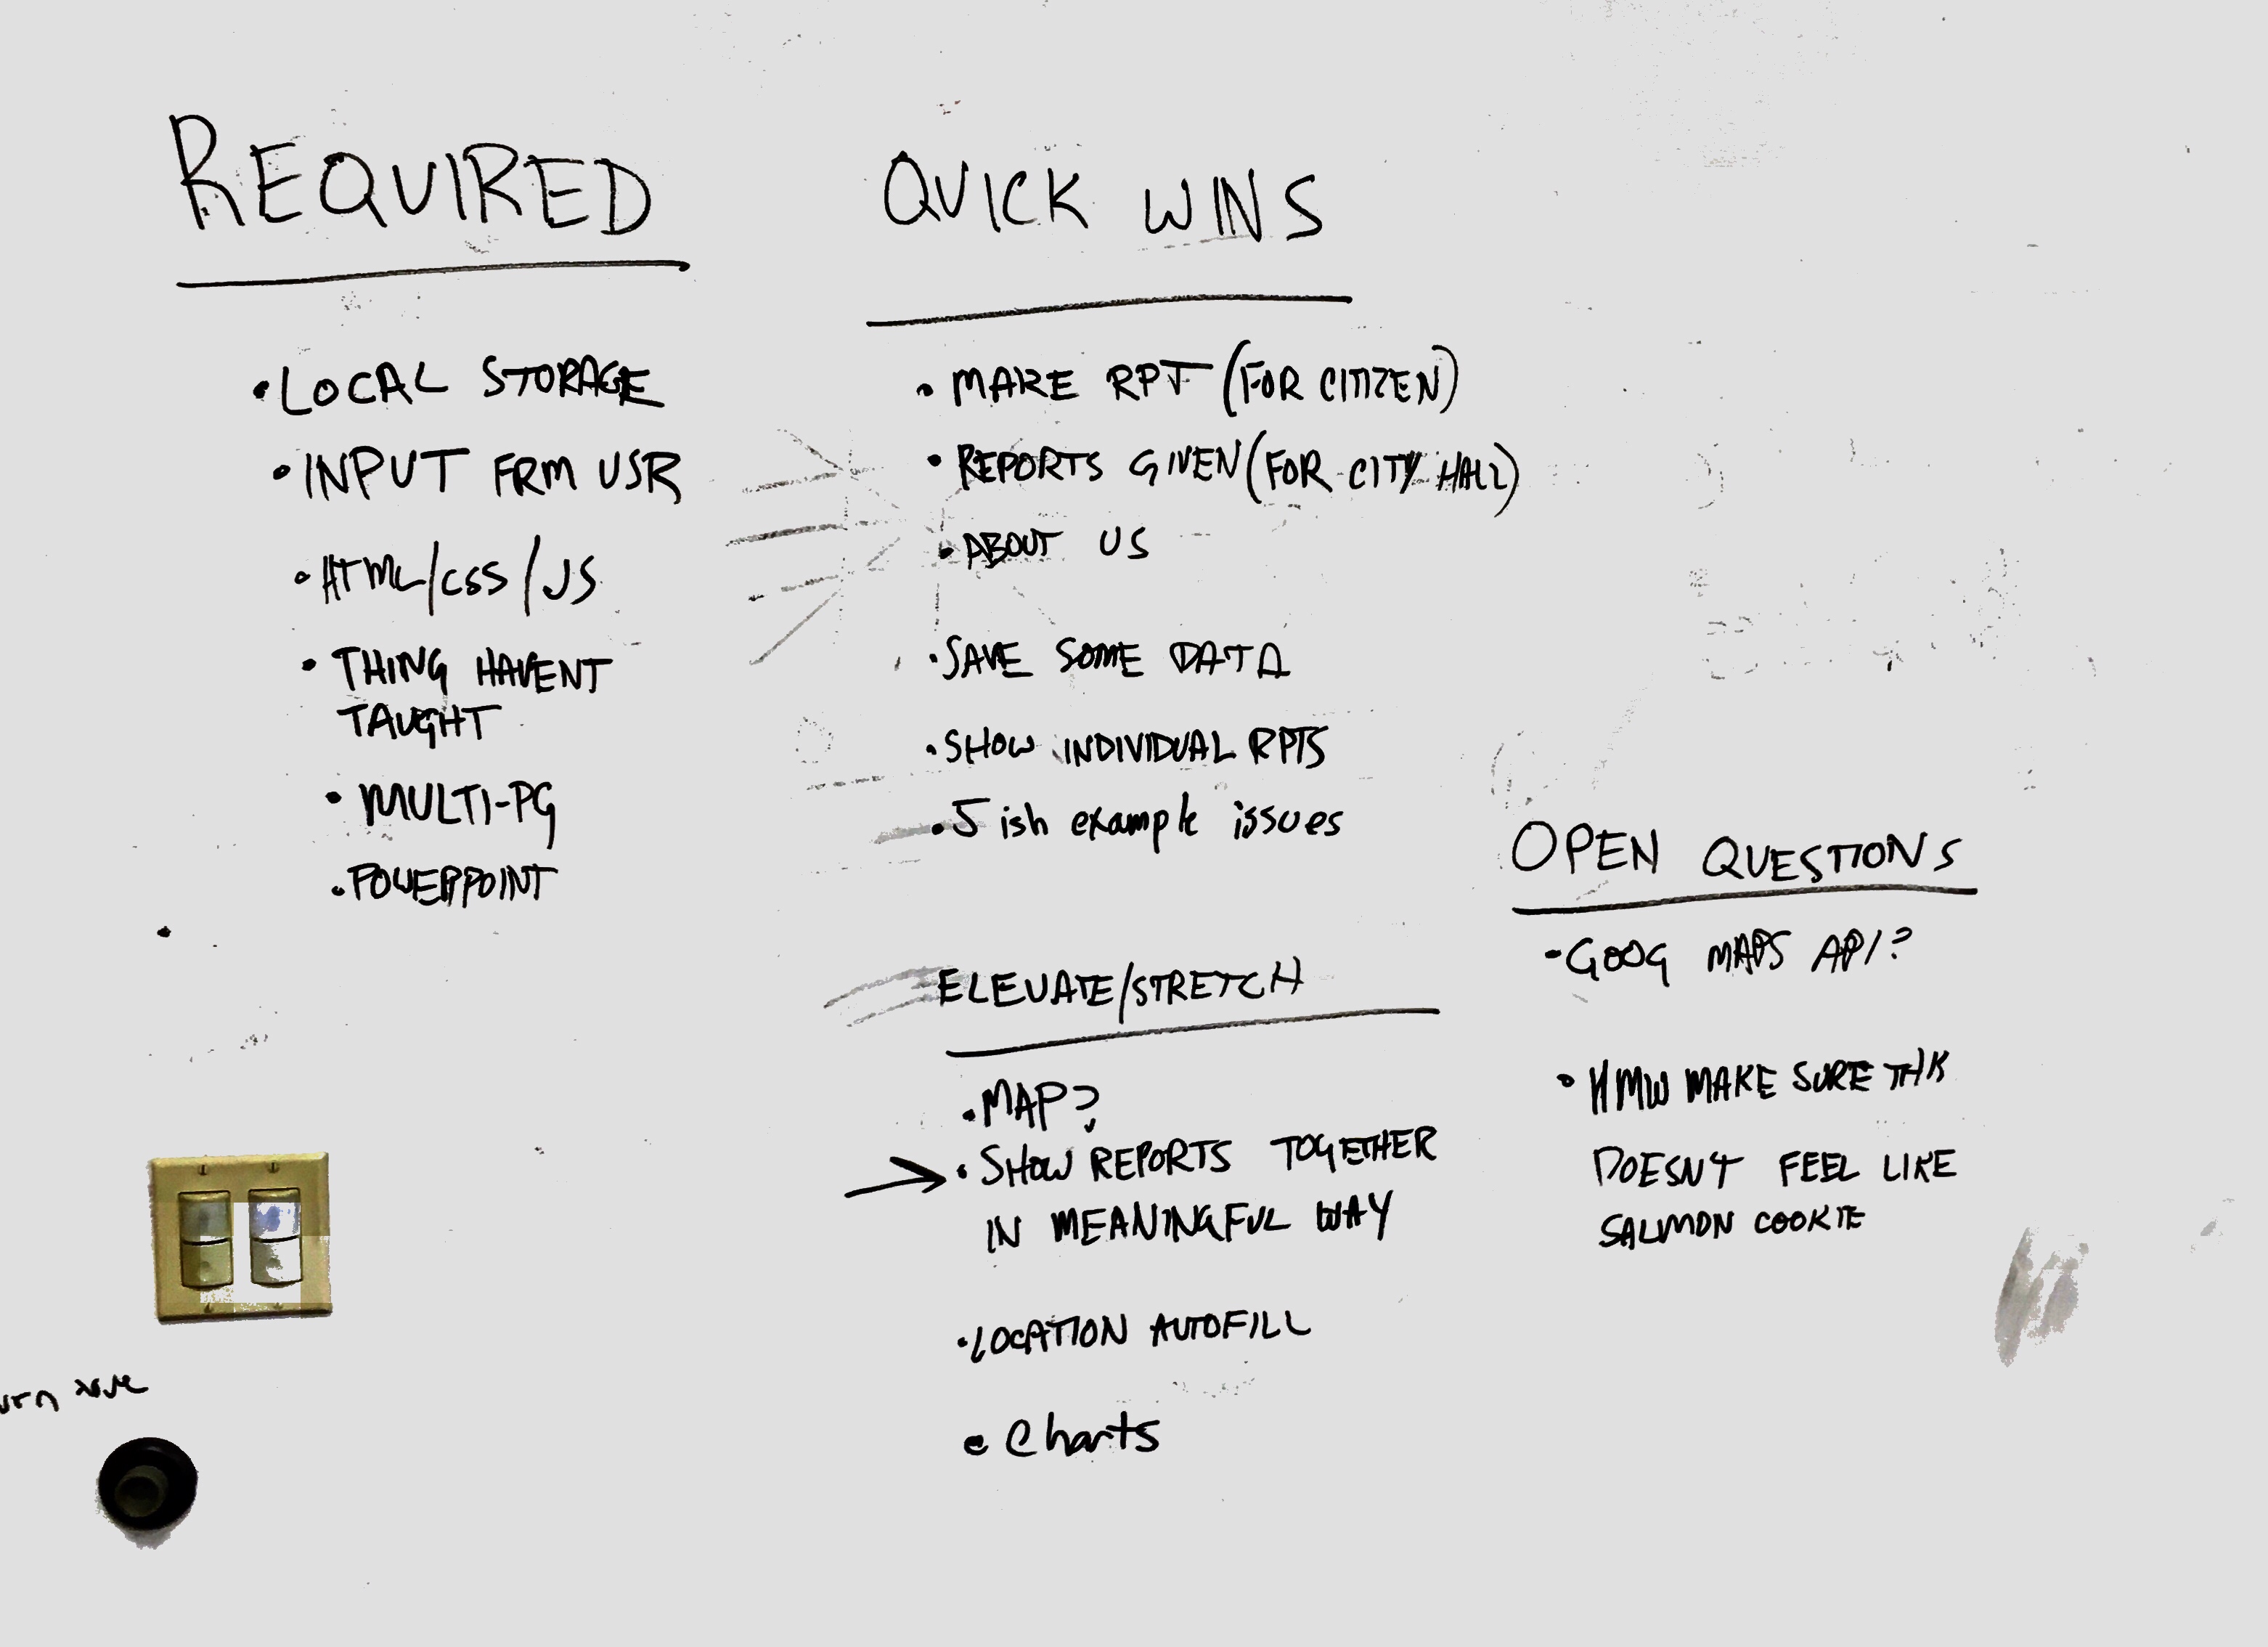 REQUIRED
• LOCAL STORAGE
• INPUT FRM USR
• HTML/CSS/JS
• THING HAVENT
TAUGHT
• MULTI-PG
• POWERPOINT
QUICK WINS
• MAKE RPT (FOR CITIZEN)
• REPORTS GIVEN (FOR CITY HALL)
• ABOUT US
• SAVE SOME DATA
• SHOW INDIVIDUAL RPTS
• 5 ish example issues
ELEVATE/STRETCH
• MAP?
• SHOW REPORTS TOGETHER
IN MEANINGFUL WAY
• LOCATION AUTOFILL
• Charts
OPEN QUESTIONS
• GOOG MAPS API?
• HMW MAKE SURE THIS
DOESN'T FEEL LIKE
SALMON COOKIE